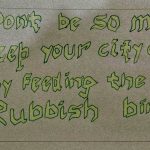 Dont be so m
eep your city c
y feeding the
Rubbish bin